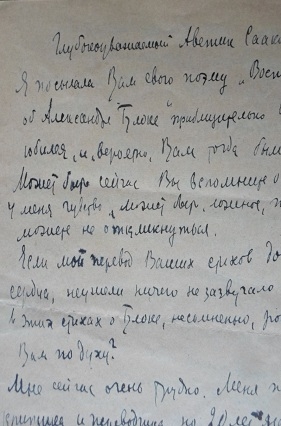 Глубокоуважаемый Аветик Саак
Я посылала Вам свою поэму „Восп
об Александре Блоке" приблизительно
юбилея, и, вероятно, Вам тогда был
Может быть сейчас Вы вспомните о
У меня чувство, может быть, ложное,
можете не откликнуться.
Если мой перевод Ваших стихов до
сердца, неужели ничего не зазвучало
в этих стихах о Блоке, несомненно,
Вам по духу?
Мне сейчас очень трудно. Меня
и переводчица по 20 лет